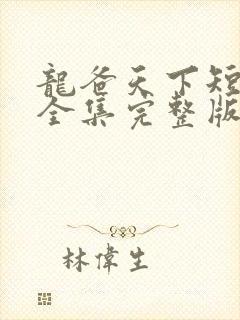 龍爸天下短
全集完整版
林偉生